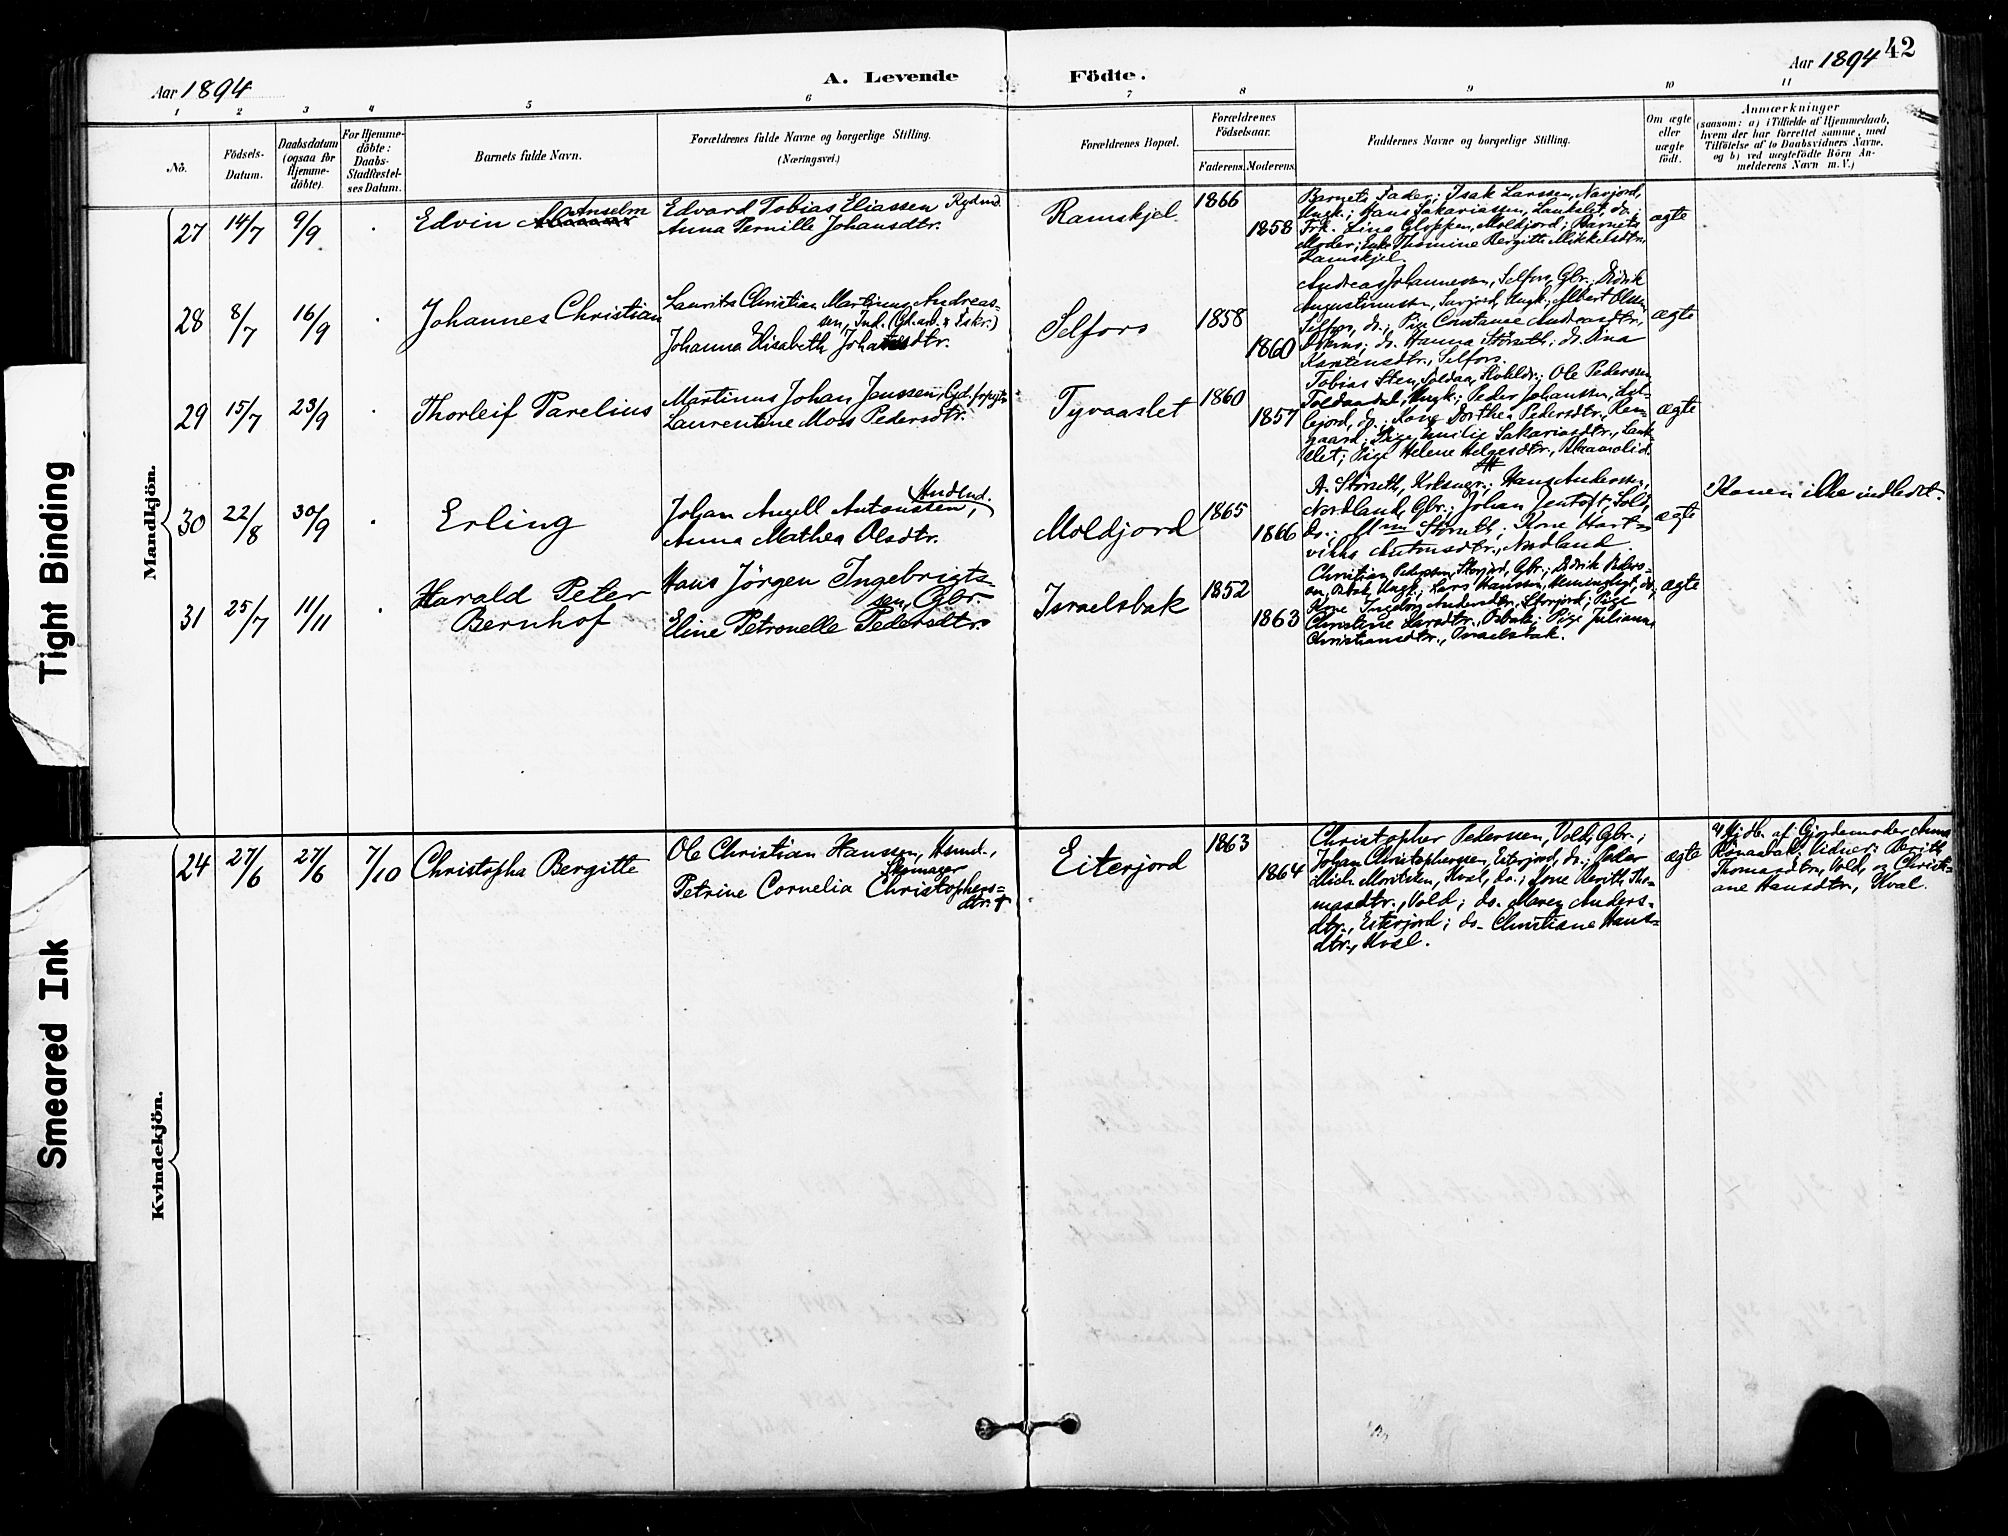 42
Aar 1894
A. Levende
Födte.
Aar 1894
1 2 3 4 5 6 7 8 9 10 11
No.
Födsels-
Datum.
Daabsdatum
(ogsaa for
Hjemme-
döbte).
For Hjemme-
döbte:
Daabs-
Stadfæstel-
ses Datum.
Barnets fulde Navn.
Forældrenes fulde Navne og borgerlige Stilling.
(Næringsvei.)
Forældrenes Bopæl.
Forældrenes
Födselsaar.
Faderens. Moderens.
Faddernes Navne og borgerlige Stilling.
Om ægte
eller
uægte
födt.
Anmærkninger
(saasom: a) i Tilfælde af Hjemmedaab,
hvem der har forrettet samme, med
Tilföielse af to Daabsvidners Navne,
og b) ved uægtefödte Börn An-
melderens Navn m. V.)
Mandkjön.
27 14/7 9/9 .
Edvin Anselm
Edvard Tobias Eliassen
Anna Pernille Johansdtr.
Ramskjel.
1866
1858
Barnets Fader; Isak Larssen, Navjord,
Ungk.; Hans Sakariassen, Laukslet, do.
Frk. Lina Gloppen, Moldjord; Barnets
Moder; Thomine Bergitte Mikkelsdtr.
Ramskjel.
ægte
28 8/7 16/9 .
Johannes Christian
Laurits Christian Martinus Andreas-
sen, Ind.
Johanna Elisabeth dtr.
Selfors
1858
1860
Andreas Johannessen, Selfors, Gbr.; Didrik
Augustinussen, Ungk.; Albert Olsen
Selfors, do.; Pige Constance Andreasdtr.,
do. Hanna Störseth; do. Lina
Karstensdtr., Selfors.
ægte
29 15/7 23/9 .
Thorleif Parelius
Martinus Johan Janssen
Laurentine Moss Pedersdtr.
Tyvaaslet
1860
1857
Tobias Sten, Soldaa, Ole Pederssen
Ungk.; Peder Johanssen,
do.; Kone Dorthea Pedersdtr.,
Pige Emilie Sakariasdtr., Lauk-
slet; Pige Helene Helgesdtr.,
ægte
30 22/8 30/9 .
Erling
Johan Angell Antonssen, Handlnd.
Anna Mathea Olsdtr.
Moldjord
1865
1866
A. Störseth, Kirkesngr.; Hans Anderssen,
Nordland, Gbr.; Johan Jentoft,
do.; Störseth; Kone Hart-
vikka Antonsdtr., Nordland.
ægte
Konen ikke indledet.
31 25/7 11/11 .
Harald Peter
Bernhof
Hans Jörgen Ingebrigts-
sen, Gbr.
Eline Petronelle Pedersdtr.
Israelsbak
1852
1863
Christian Pederssen, Storjord, Gbr.; Didrik Peders-
sen, Osbak, Ungk.; Lars Hanssen, do.;
Kone Ingeborg Andersdtr., Storjord; Pige
Christine Larsdtr., Osbak; Pige Julianna
Christiansdtr., Israelsbak.
ægte
Kvindekjön.
24 27/6 27/6 7/10
Christopha Bergitte
Ole Christian Hanssen, Husmd.,
Skomager
Petrine Cornelia Christophers-
dtr. †
Eiterjord
1863
1864
Christopher Pedersen, Vold, Gbr.;
Johan Christophersen, Eiterjord, do.; Peder
Mich. Moritsen, Kval, do.; Kone Berith Tho-
masdtr., Vold; do. Maren Anders-
dtr., Eiterjord; do. Christiane Hans-
dtr., Kval.
ægte
Hjdb. af Gjordemoder Anna
Vidner: Berith
Thomasdtr., Vold, og Christi-
ane Hansdtr., Kval.
Tight Binding
Smeared Ink